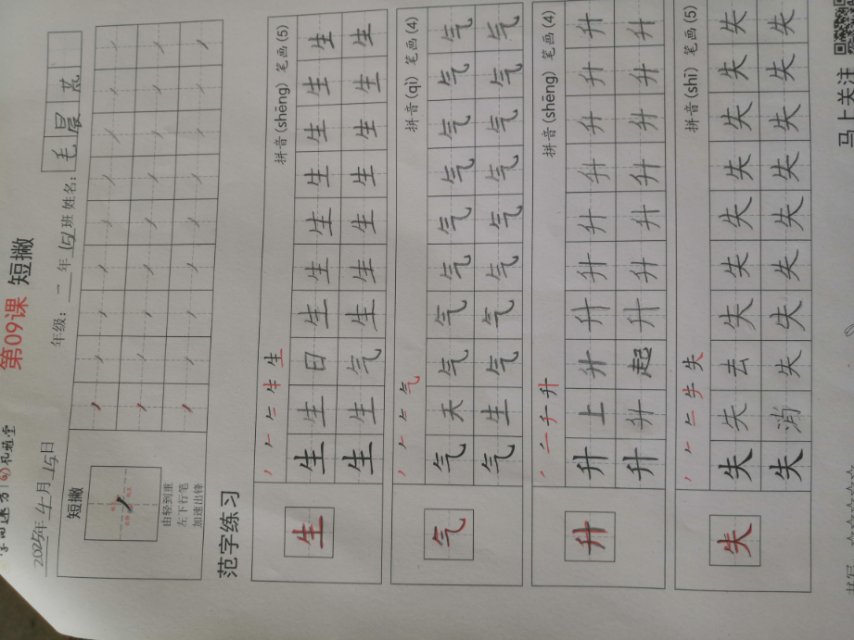 2025年4月15日
第09课 短撇
年级：一 年 (5) 班 姓名：毛晨
短撇
由轻到重
左下行笔
加速出锋
范字练习
拼音(shēng) 笔画(5)
生
生 生 日 生 生 生 生 生 生 生
生 生 气 生 生 生 生 生 生 生
拼音(qì) 笔画(4)
气
气 天 气 气 气 气 气 气 气 气
气 生 气 气 气 气 气 气 气 气
拼音(shēng) 笔画(4)
升
升 上 升 升 升 升 升 升 升 升
升 升 起 升 升 升 升 升 升 升
拼音(shī) 笔画(5)
失
失 失 去 失 失 失 失 失 失 失
失 消 失 失 失 失 失 失 失 失
马上关注